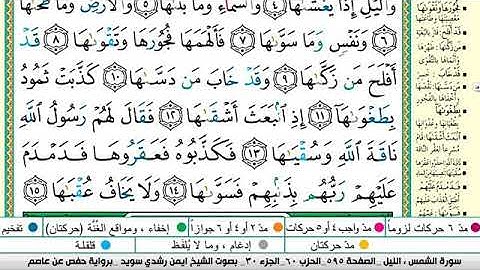 وَٱلَّيۡلِ إِذَا يَغۡشَىٰهَا ٤ وَٱلسَّمَآءِ وَمَا بَنَىٰهَا ٥ وَٱلۡأَرۡضِ وَمَا طَحَىٰهَا
٦ وَنَفۡسٖ وَمَا سَوَّىٰهَا ٧ فَأَلۡهَمَهَا فُجُورَهَا وَتَقۡوَىٰهَا ٨ قَدۡ
أَفۡلَحَ مَن زَكَّىٰهَا ٩ وَقَدۡ خَابَ مَن دَسَّىٰهَا ١٠ كَذَّبَتۡ ثَمُودُ
بِطَغۡوَىٰهَآ ١١ إِذِ ٱنۢبَعَثَ أَشۡقَىٰهَا ١٢ فَقَالَ لَهُمۡ رَسُولُ ٱللَّهِ
نَاقَةَ ٱللَّهِ وَسُقۡيَٰهَا ١٣ فَكَذَّبُوهُ فَعَقَرُوهَا فَدَمۡدَمَ
عَلَيۡهِمۡ رَبُّهُم بِذَنۢبِهِمۡ فَسَوَّىٰهَا ١٤ وَلَا يَخَافُ عُقۡبَٰهَا ١٥
مدّ ٦ حركات لزوماً مدّ واجب ٤ أو ٥ حركات مدّ ٢ أو ٤ أو ٦ جوازاً إخفاء، ومواقع الغُنَّة (حركتان) تفخيم
مدّ حركتان إدغام، وما لا يُلفَظ قلقلة
سورة الشمس، الليل _ الصفحة ٥٩٥ _ الحزب ٦٠ _ الجزء ٣٠ _ بصوت الشيخ ايمن رشدي سويد _ برواية حفص عن عاصم